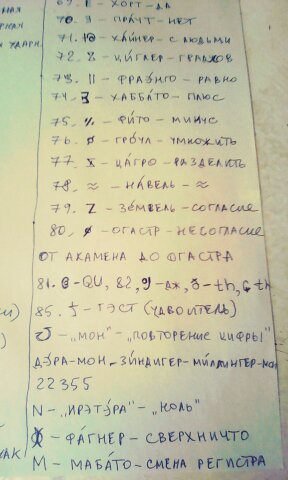 69. – ХОРТ-ДА
70. – ПРАЧТ-НЕТ
71. – ХАЙНЕР – С ЛЮДЬМИ
72. – ЦИГЛЕР – ГРАДУСОВ
73. || – ФРАЭНГО – РАВНО
74. – ХАББАТО – ПЛЮС
75. – ФИТО – МИНУС
76. – ГРОЧЛ – УМНОЖИТЬ
77. – ЦАГРО – РАЗДЕЛИТЬ
78. ≈ – НАВЕЛЬ – ≈
79. Z – ЗЕМВЕЛЬ – СОГЛАСИЕ
80. – ОГАСТР – НЕСОГЛАСИЕ
ОТ АХАМЕНА ДО ОГАСТРА
81. – QU, 82. – дж, – th, – th
85. – ГЭСТ (УДВОИТЕЛЬ)
– „МОН" – „ПОВТОРЕНИЕ ЦИФРЫ"
ДЭРА-МОН-ЗИНДИГЕР-МИЛЛИНГЕР-МОН
22355
N – „ИРЭТЭРА" – „НОЛЬ"
– ФАГНЕР – СВЕРХНИЧТО
М – МАБАТО – СМЕНА РЕГИСТРА